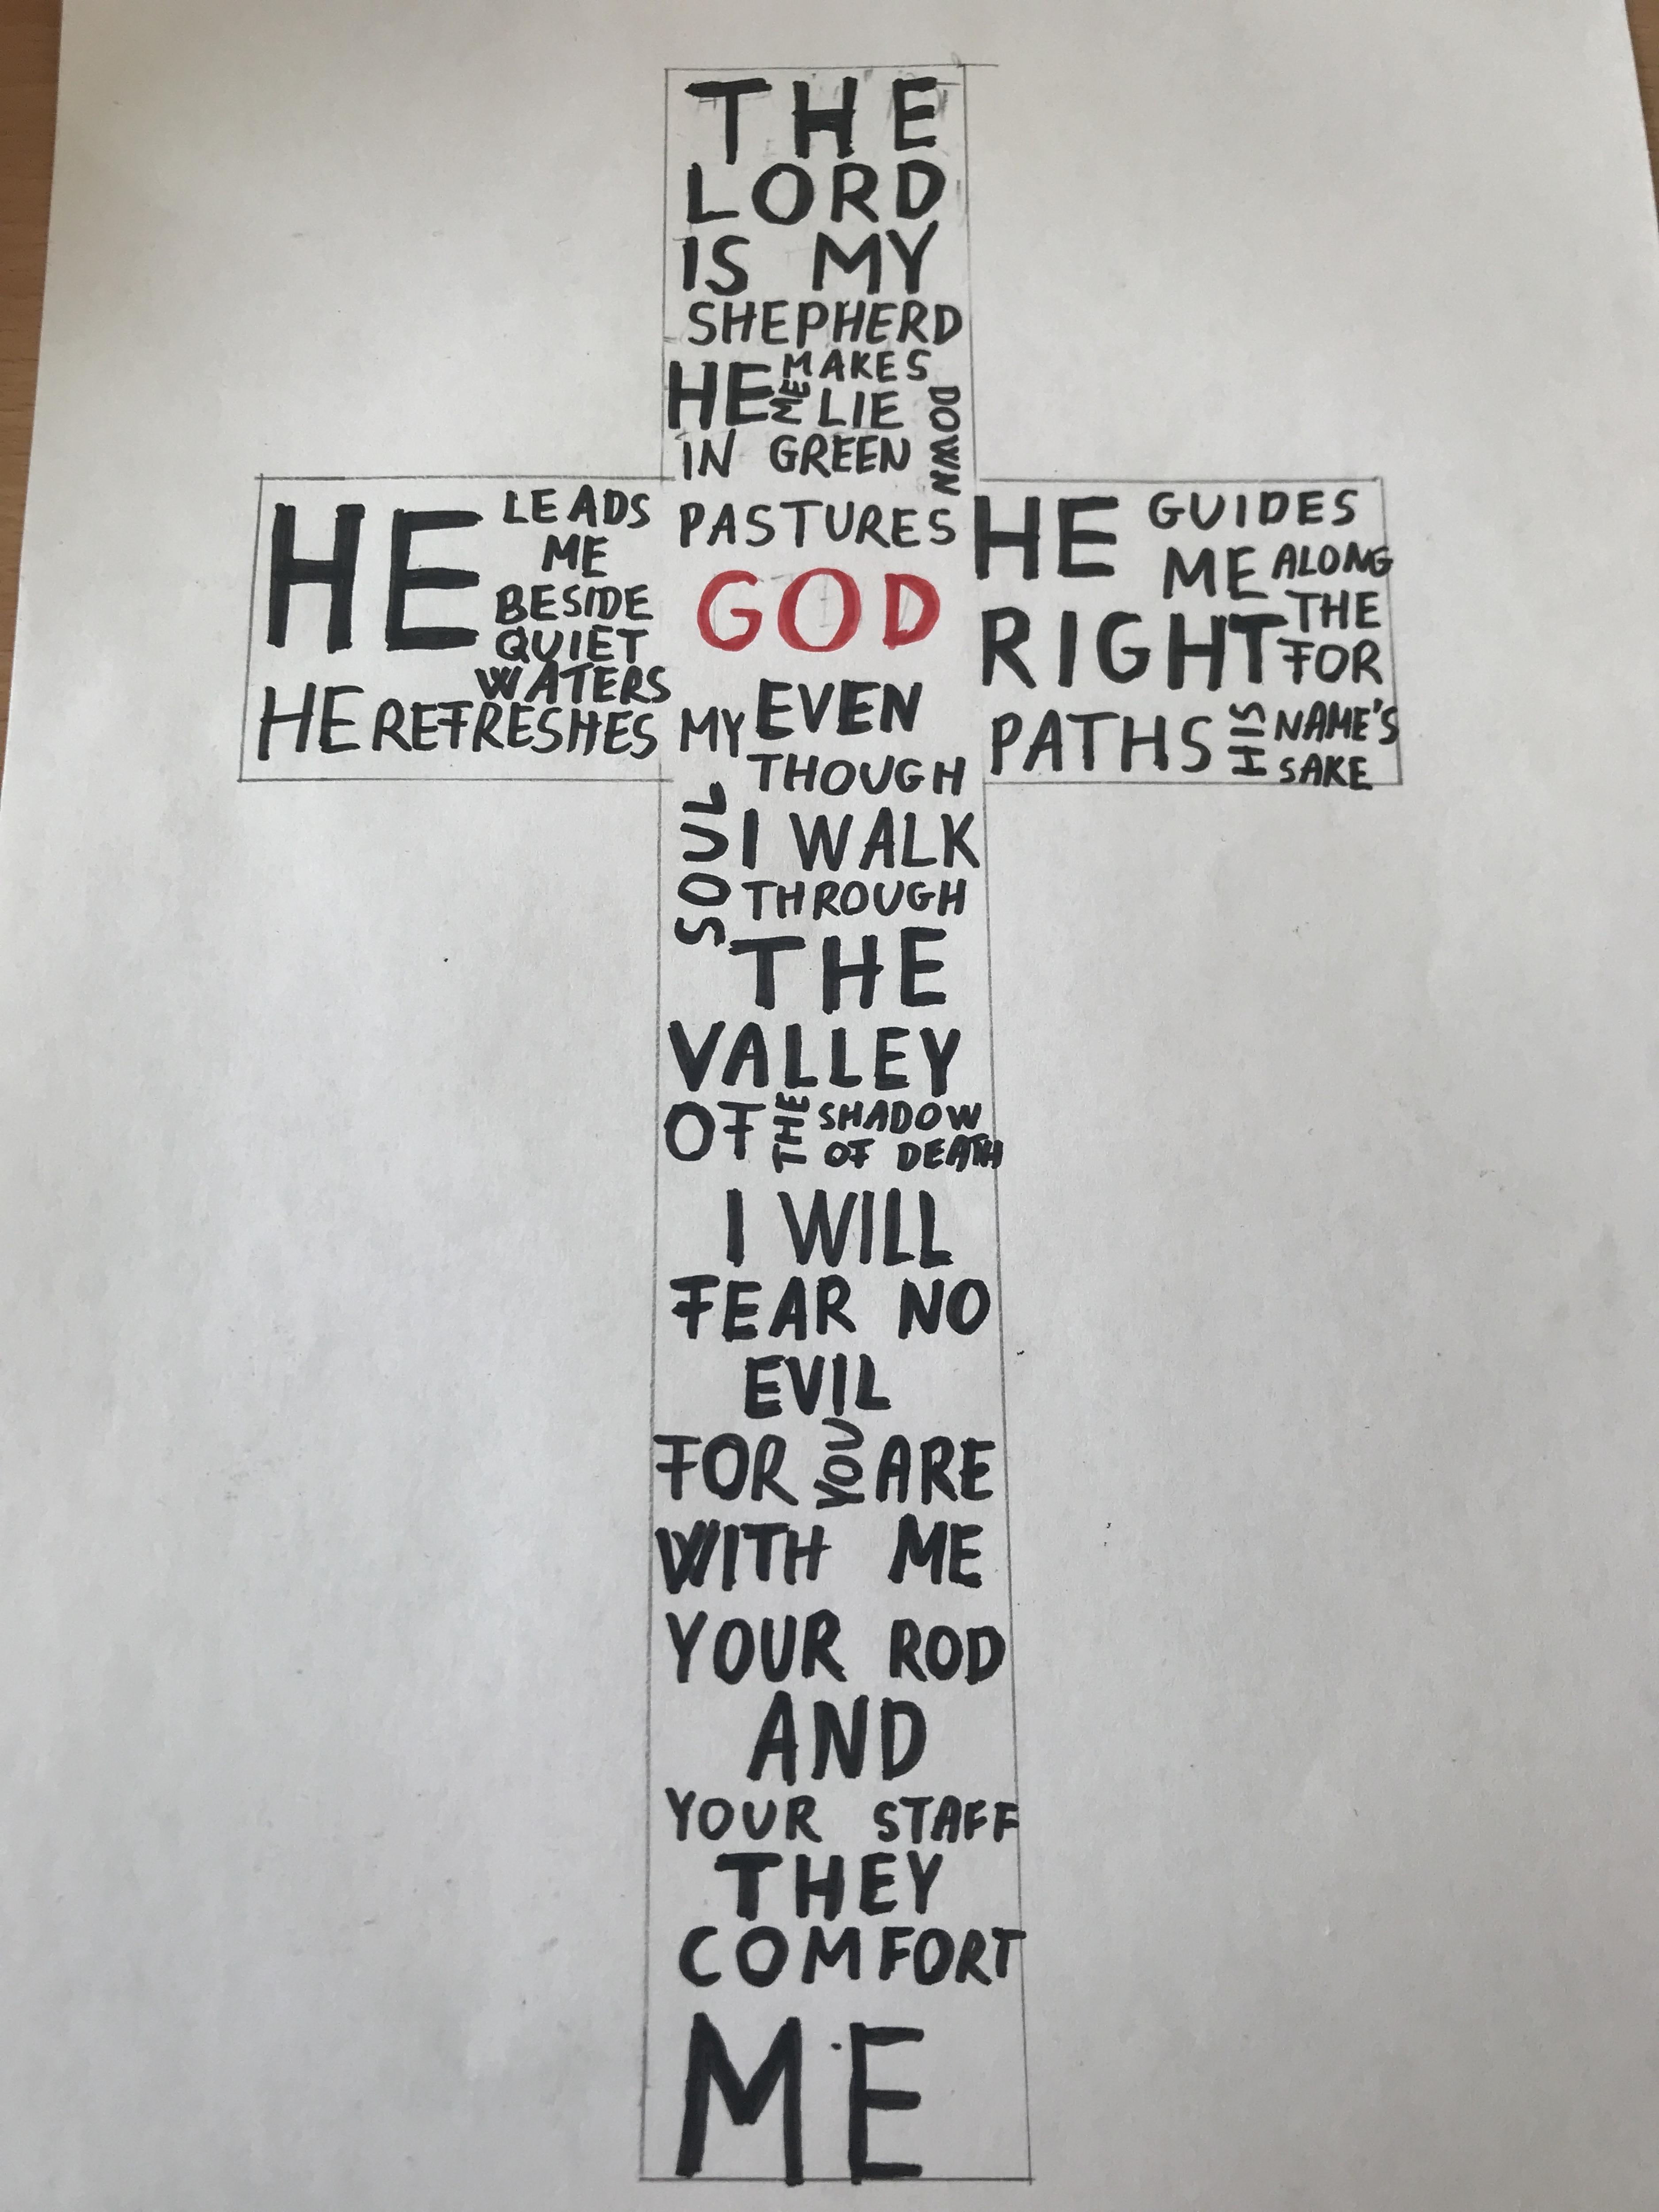 THE
LORD
IS MY
SHEPHERD
HE MAKES
ME LIE DOWN
IN GREEN
PASTURES
GOD
HE LEADS
ME
BESIDE
QUIET
WATERS
HE REFRESHES MY
SOUL
HE GUIDES
ME ALONG
THE
RIGHT
PATHS
FOR
HIS NAME'S
SAKE
EVEN
THOUGH
I WALK
THROUGH
THE
VALLEY
OF THE SHADOW
OF DEATH
I WILL
FEAR NO
EVIL
FOR YOU ARE
WITH ME
YOUR ROD
AND
YOUR STAFF
THEY
COMFORT
ME